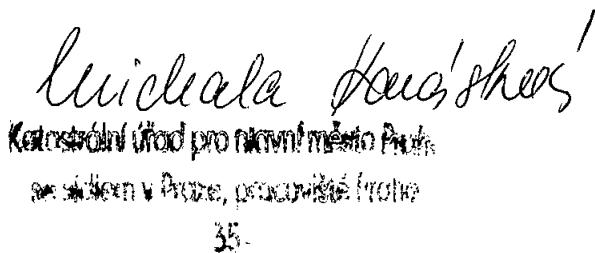 Michala
Katastrální úřad pro hlavní město Prah
se sídlem v Praze, pracoviště Praha
35-